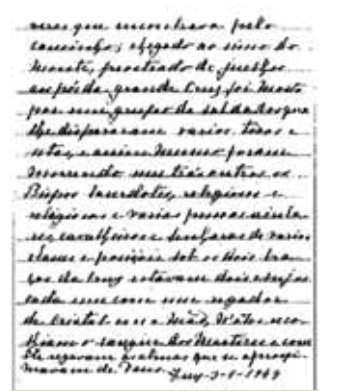 mas que encontrava pelo
caminho; chegado ao cimo do
monte, prostrado de juelhos
aos pés da grande Cruz foi morto
por um grupo de soldados que
lhe dispararam varios tiros e
setas, e assim mesmo foram
morrendo uns trás outros os
Bispos Sacerdotes, religiosos e
religiosas e varias pessoas
cavalheiros e senhoras de varias
classes e posições. Sob os dois bra-
ços da Cruz estavam dois Anjos
cada um com um regador
de cristal em a mão, n'eles reco-
lhiam o sangue dos Martires e com
ele regavam as almas que se aproxi-
mavam de Deus.
Tuy-3-1-1944